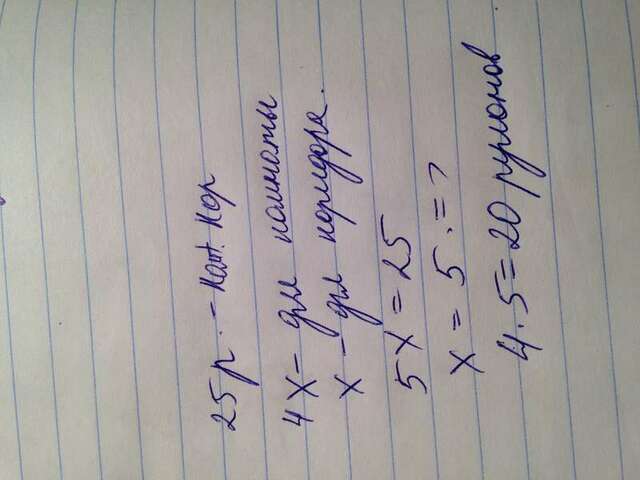 25р. - Кат. Кор
4х - для комнаты
х - для коридора.
5х = 25
х = 5 . = >
4.5 = 20 рулонов